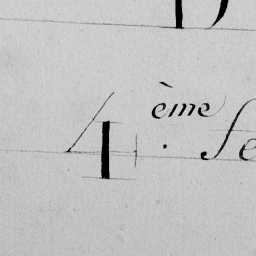 4ème. Se